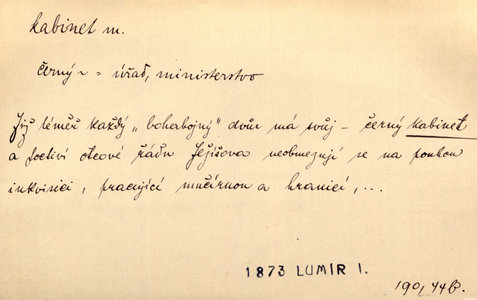 kabinet m.
černý ~ = úřad, ministerstvo
Již téměř každý „bohabojný" dvůr má svůj – černý kabinet
a poctiví otcové řádu Ježíšova neobmezují se na pouhou
inkvisici, pracující mučírnou a hranicí, ...
1873 LUMÍR I.
190, 44B.